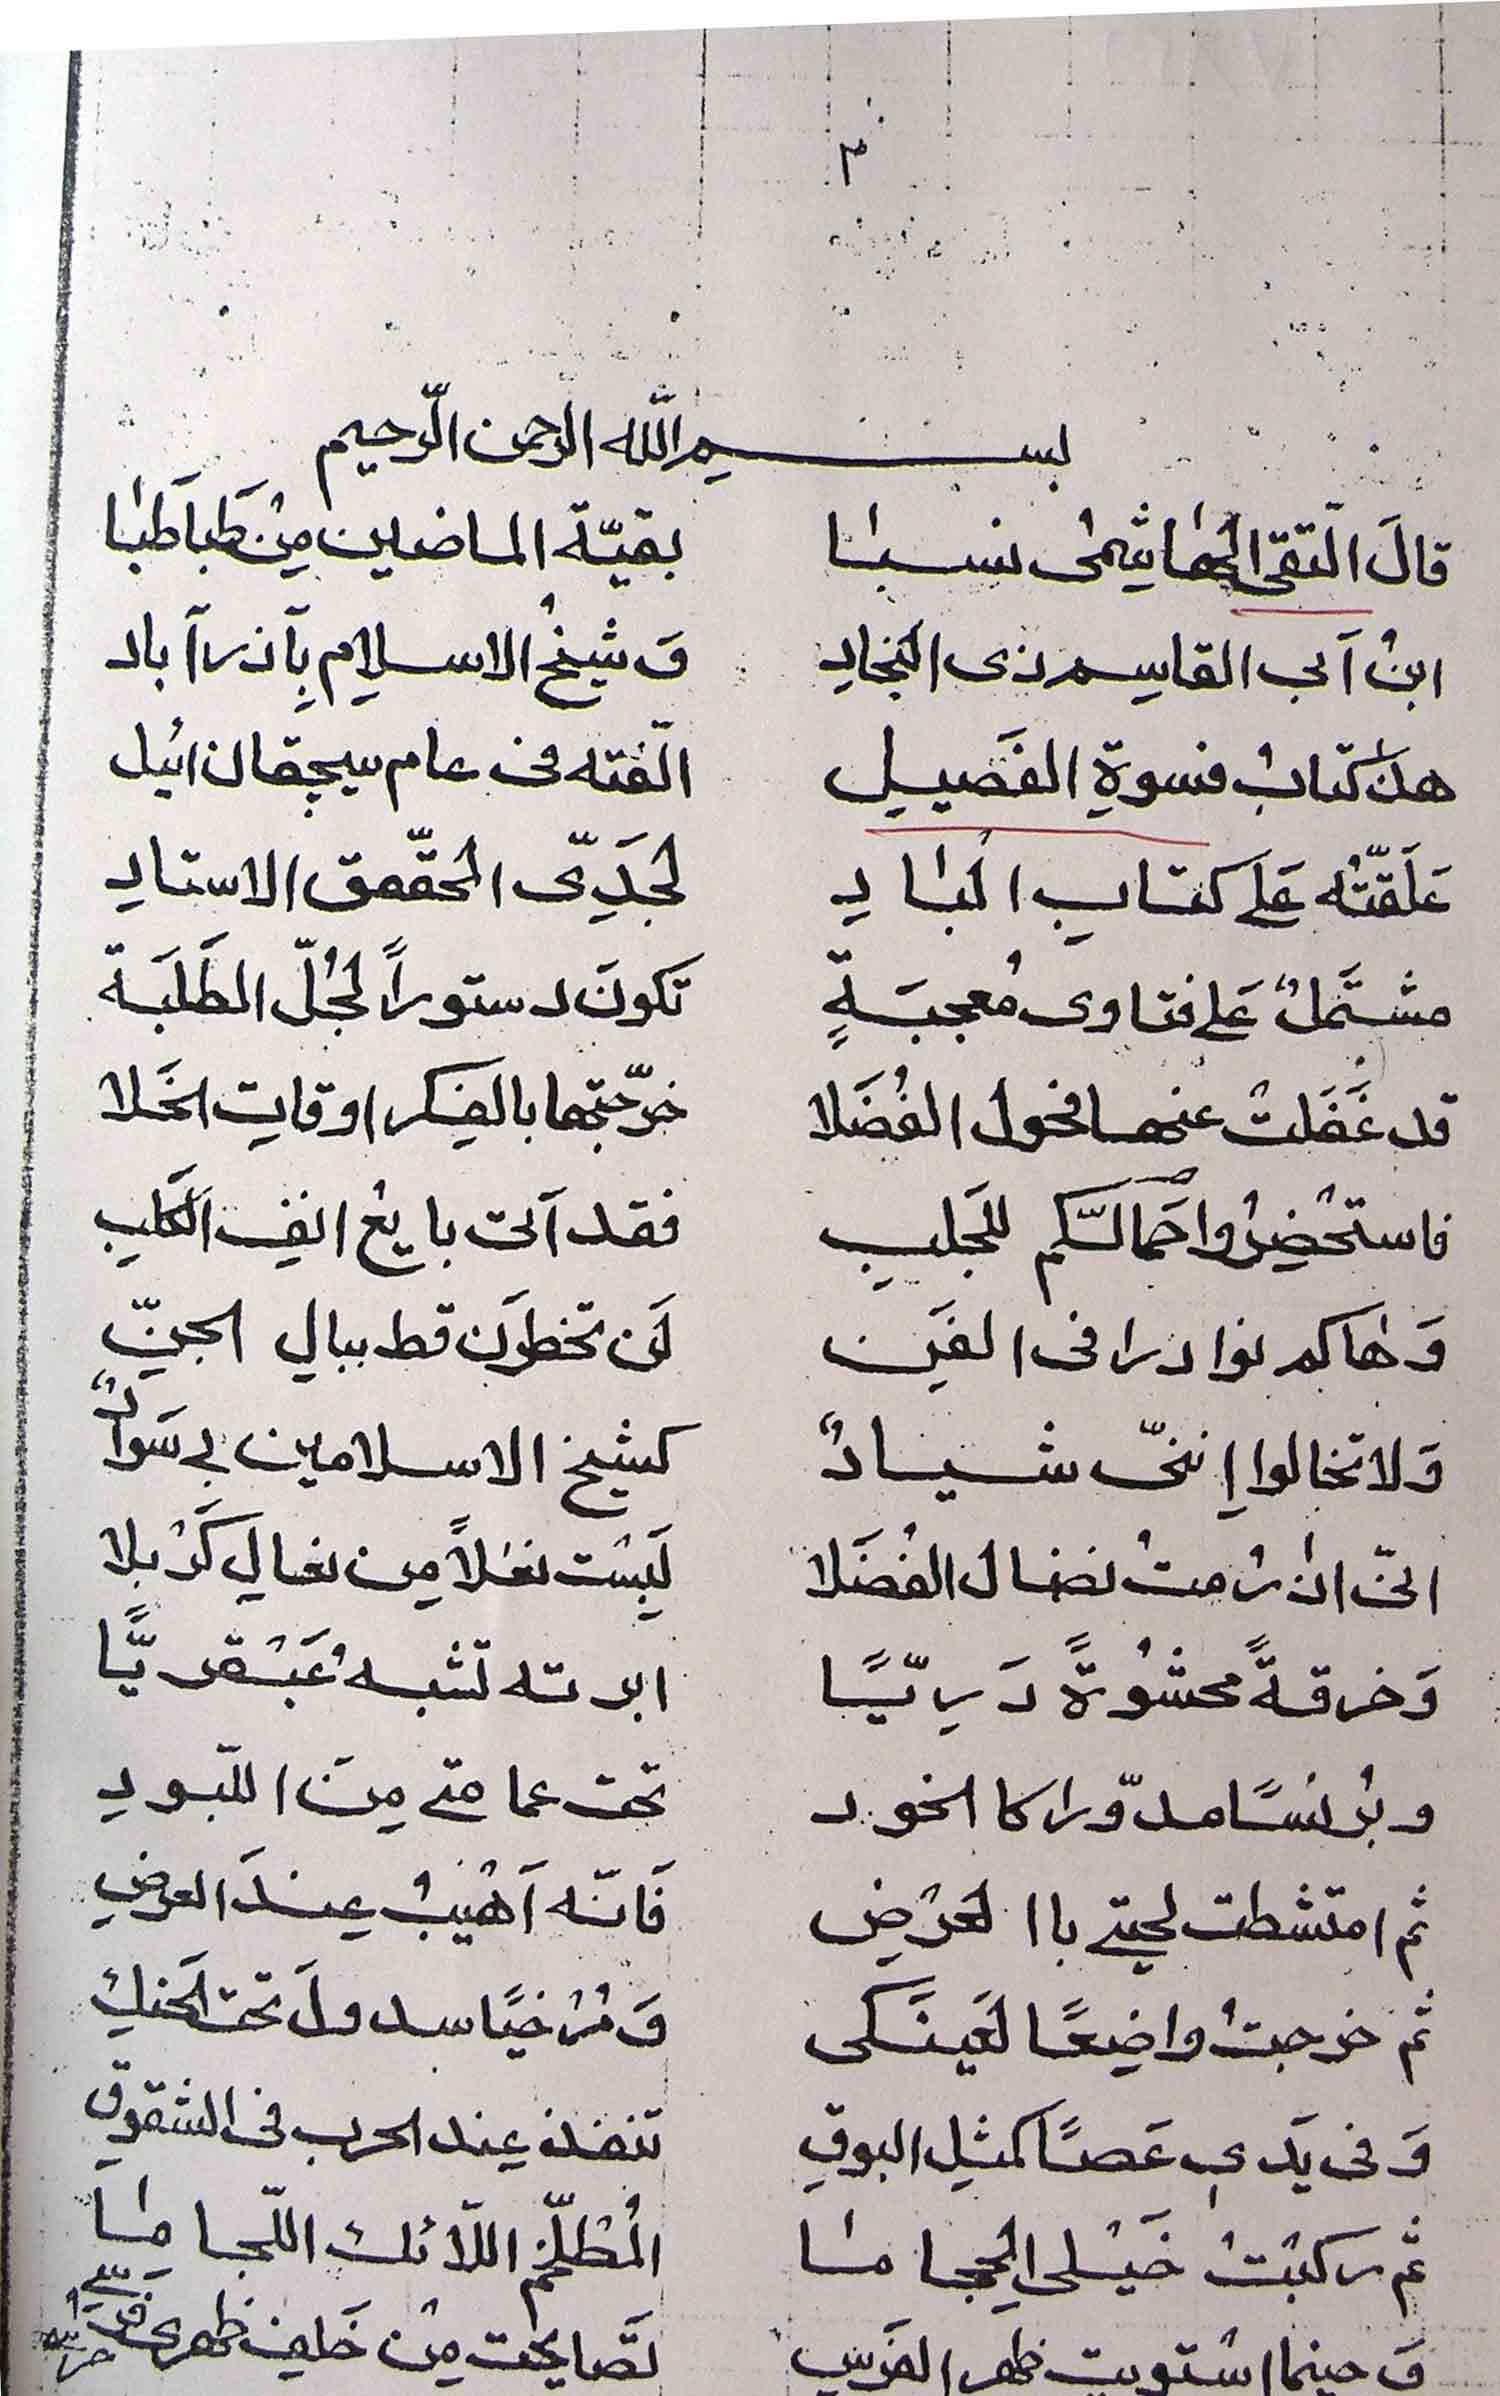 ٣
بسم اللّه الرحمن الرّحيم
قالَ التّقى الهاشمى نسبا بقيّة الماضين مِن طَباطَبا
ابن اَبى القاسم ذى النجاد و شيخُ الاسلام بِآذرآباد
هذا كتابُ فسوةِ الفَصيل الّفته فى عام سيچقان ائيل
عَلَّقتُه عَلى كتابِ البادِ لجَدِّى المحقّق الاستادِ
مشتملٌ عَلى فتاوى مُعجبَةٍ تكونَ دستوراً لجُلّ الطَلَبَة
قد غَفَلت عنها فحول الفُضَلا خرّجتها بالفكر اوقات الخَلا
فاستحضِرُوا حمّالكم للجَلبِ فقد اَتى بايغ انف الكَلبِ
وَ هاكم نوادرا فى الفَنِ لَن تخطرَن قط ببالِ الجنِّ
وَ لا تخالوا إِنّنى شيادٌ كشيخ الاسلامين بى سَوادٌ
انّى اذا رُمتُ نضال الفُضَلا لَبِست نعلاً مِن نعالِ كَربلا
وَ خرقةً محشُوةً دَرِيّسًا ابرته تشبه عَبقريًّا
و بُرنسًا مدّورا كالخود تحت عمامتى مِنَ اللّبودِ
ثم امتشطت لحيتى باالحرضِ فَانّه اَهيبُ عِندَ العرضِ
ثم خرجتُ واضِعًا لعَينَكى وَ مُرخيًا سدولَ تحت الحنكِ
وَ فى يَدى عَصًا كمثلِ البوقِ تنفذ عِند الحرب فى الشقوقِ
ثم ركبتُ خَيلى الحِجاما المُطلخّم اللّائك اللّجاما
وَ حينما استويت ظهر الفرسِ تصايحت مِن خلف ظهرى